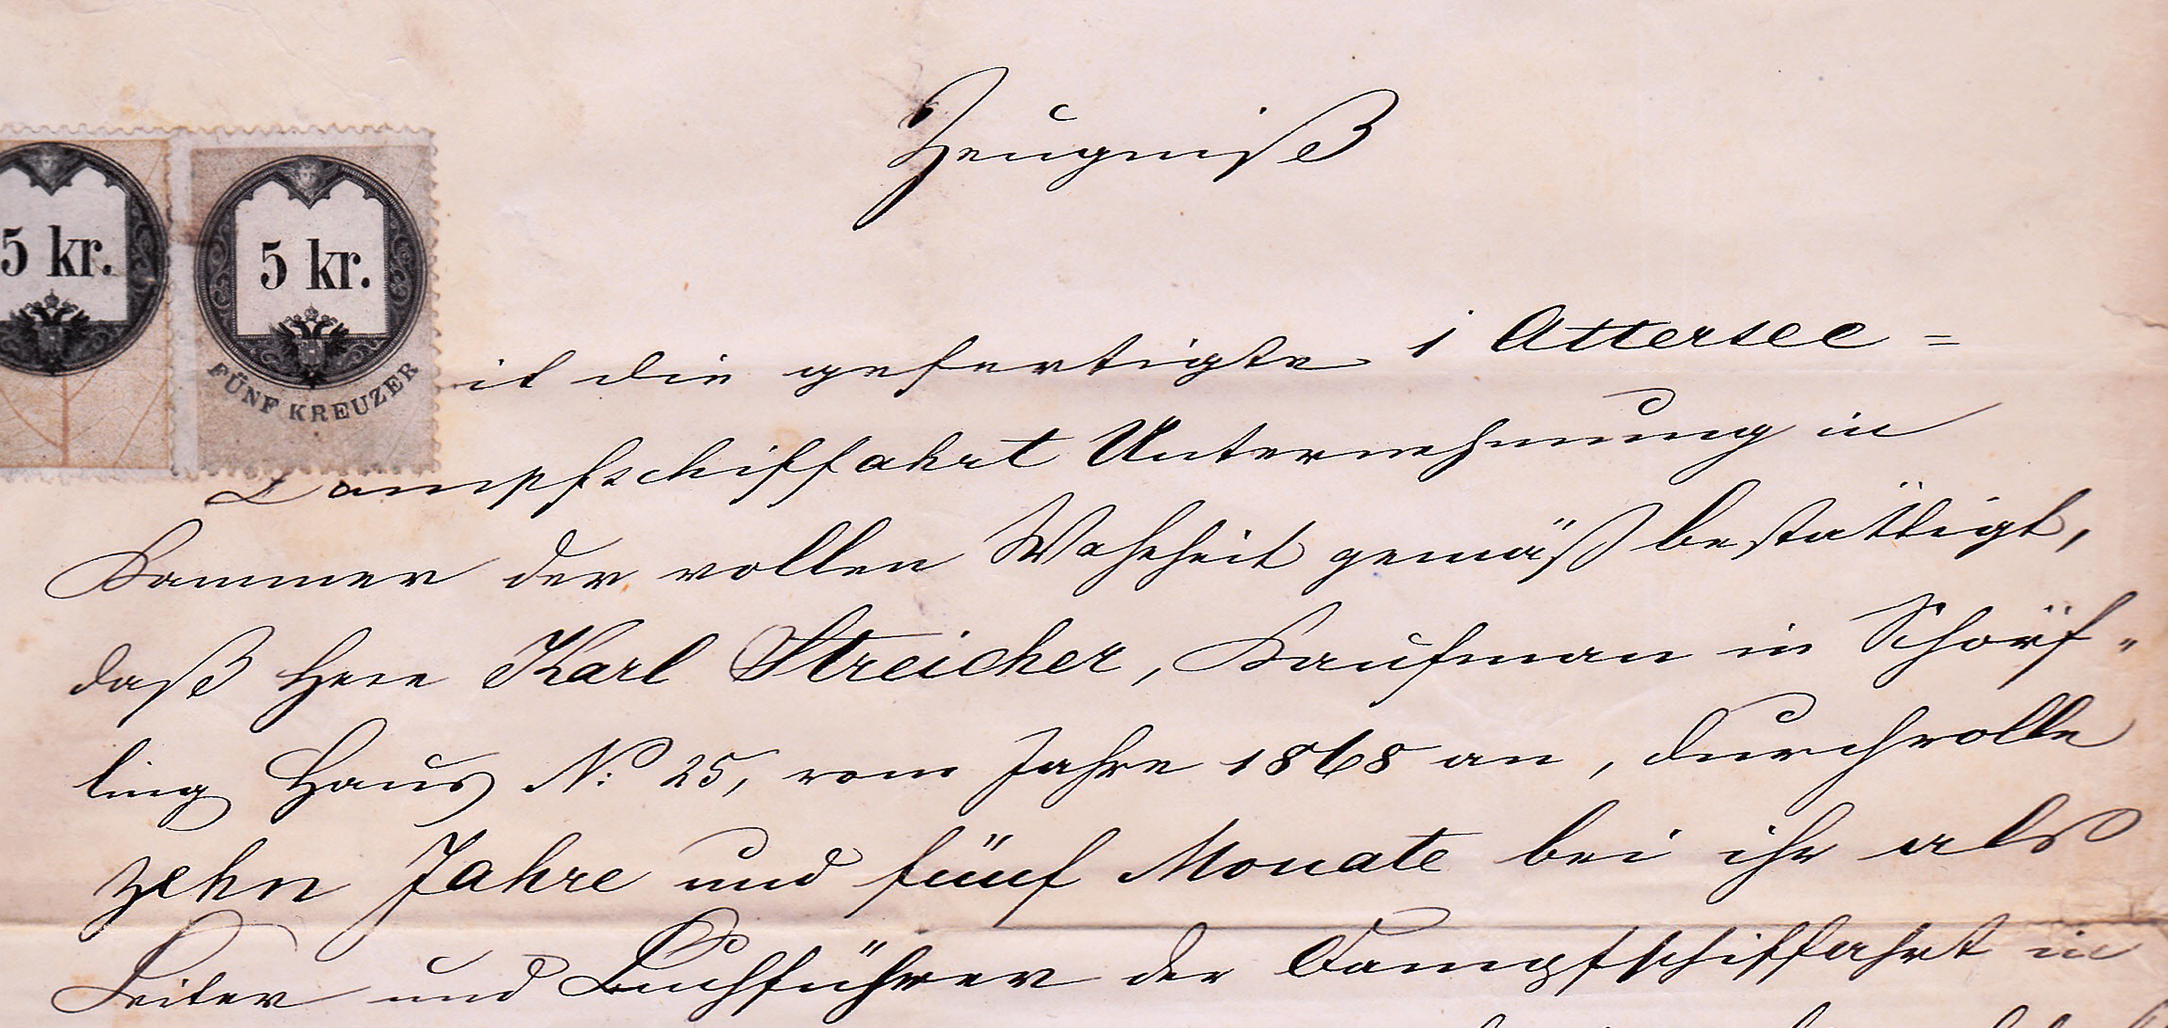 Zeugniß
5 kr.
5 kr.
FÜNF KREUZER
die gefertigte Attersee=
Dampfschiffahrt Unternehmung in
Kammer der vollen Wahrheit gemäß bestättigt,
daß Herr Karl Streicher, Kaufman in Schörf„
ling Haus N: 25, vom Jahre 1868 an, durch volle
zehn Jahre und fünf Monate bei ihr als
Leiter und Buchführer der Dampfschiffahrt in